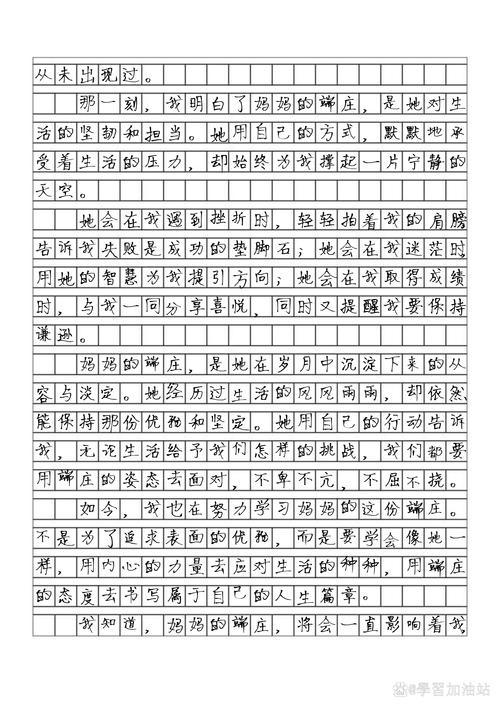 从未出现过。
那一刻，我明白了妈妈的端庄，是她对生
活的坚韧和担当。她用自己的方式，默默地承
受着生活的压力，却始终为我撑起一片宁静的
天空。
她会在我遇到挫折时，轻轻拍着我的肩膀
告诉我失败是成功的垫脚石；她会在我迷茫时，
用她的智慧为我提引方向；她会在我取得成绩
时，与我一同分享喜悦，同时又提醒我要保持
谦逊。
妈妈的端庄，是她在岁月中沉淀下来的从
容与淡定。她经历过生活的风风雨雨，却依然
能保持那份优雅和坚定。她用自己的行动告诉
我，无论生活给予我们怎样的挑战，我们都要
用端庄的姿态去面对，不卑不亢，不屈不挠。
如今，我也在努力学习妈妈的这份端庄。
不是为了追求表面的优雅，而是要学会像她一
样，用内心的力量去应对生活的种种，用端庄
的态度去书写属于自己的人生篇章。
我知道，妈妈的端庄，将会一直影响着我，
@學習加油站